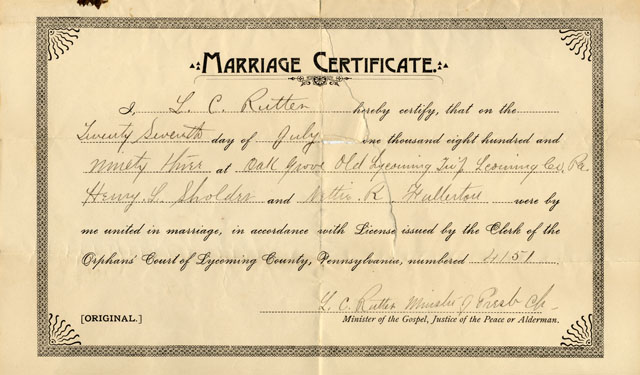 MARRIAGE CERTIFICATE.
I, L. C. Rutter hereby certify, that on the
Twenty Seventh day of July one thousand eight hundred and
Ninety three at Oak Grove Old Lycoming Twp Lycoming Co, Pa.
Henry L. Sholder and Nettie R Fullerton were by
me united in marriage, in accordance with License issued by the Clerk of the
Orphans' Court of Lycoming County, Pennsylvania, numbered 4151
L. C. Rutter Minister of Presb Ch
[ORIGINAL.] Minister of the Gospel, Justice of the Peace or Alderman.